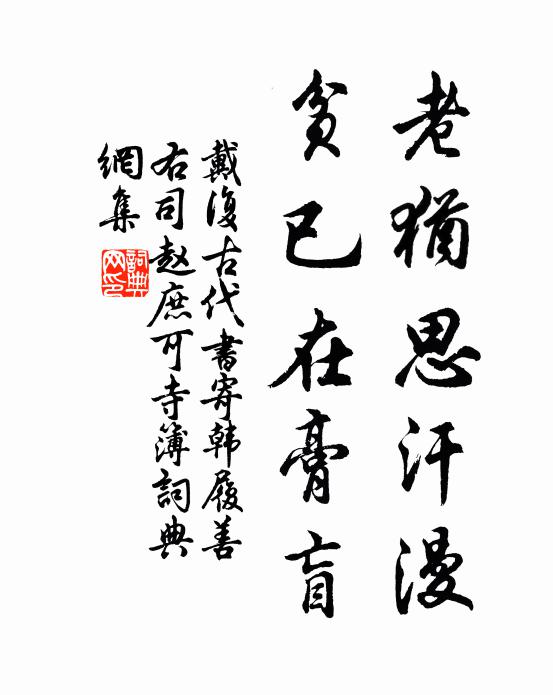 老犹思汗漫
贫已在膏盲
戴復古代書寄韩履善
右司赵庶可寺簿詞典
網集
詞典
网印